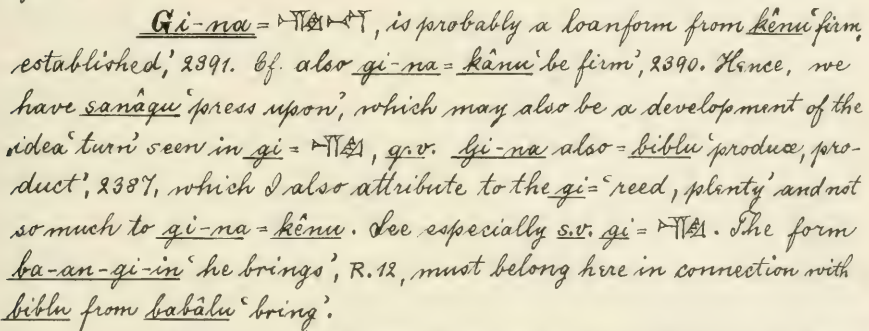 Gi-na = 𒄀𒈾, is probably a loanform from kênu ‘firm,
established,’ 2391. Cf. also gi-na = kânu ‘be firm’, 2390. Hence, we
have sanâqu ‘press upon’, which may also be a development of the
idea ‘turn’ seen in gi = 𒄀, q.v. Gi-na also = biblu ‘produce, pro-
duct’, 2387, which I also attribute to the gi = ‘reed, plenty’ and not
so much to gi-na = kênu. See especially s.v. gi = 𒄀. The form
ba-an-gi-in ‘he brings’, R. 12, must belong here in connection with
biblu from babâlu ‘bring’.